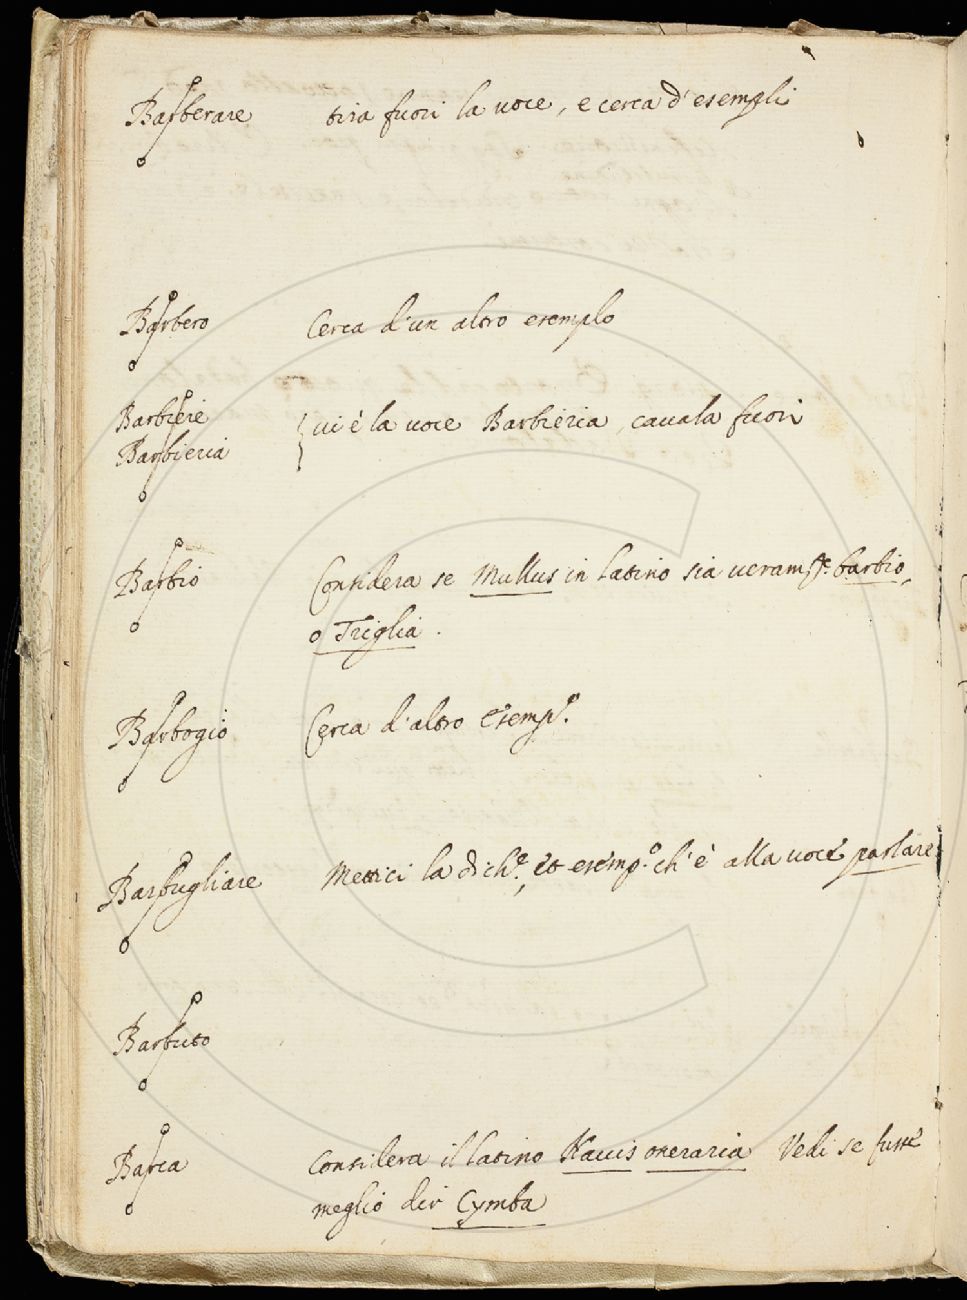 Barberare tira fuori la uoce, e cerca d'esempli
Barbero Cerca d'un altro esemplo
Barbiere
Barbieria } ui è la uoce Barbieria, cauala fuori
Barbio Considera se Mullus in latino sia ueram.te barbio,
o Triglia.
Barbogio Cerca d'altro esemp.o
Barbugliare Mettici la dich.e, et esemp.o ch'è alla uoce parlare
Barbuto
Barca Considera il latino Nauis oneraria Vedi se fusse
meglio dir Cymba